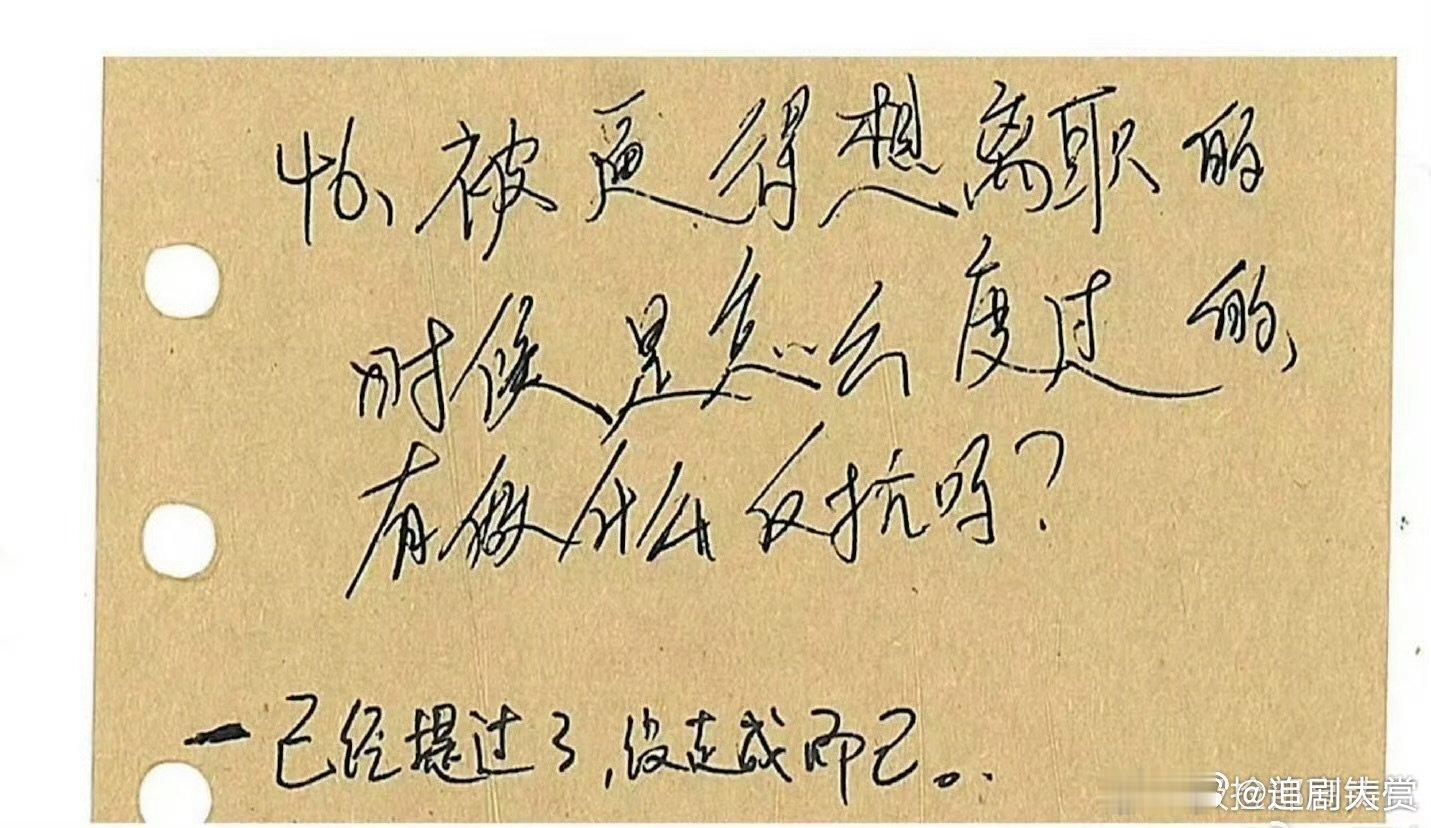 46、被逼得想离职的
时候是怎么度过的、
有做什么反抗吗？
一已经提过了,没走成而已。
@追剧铸赏